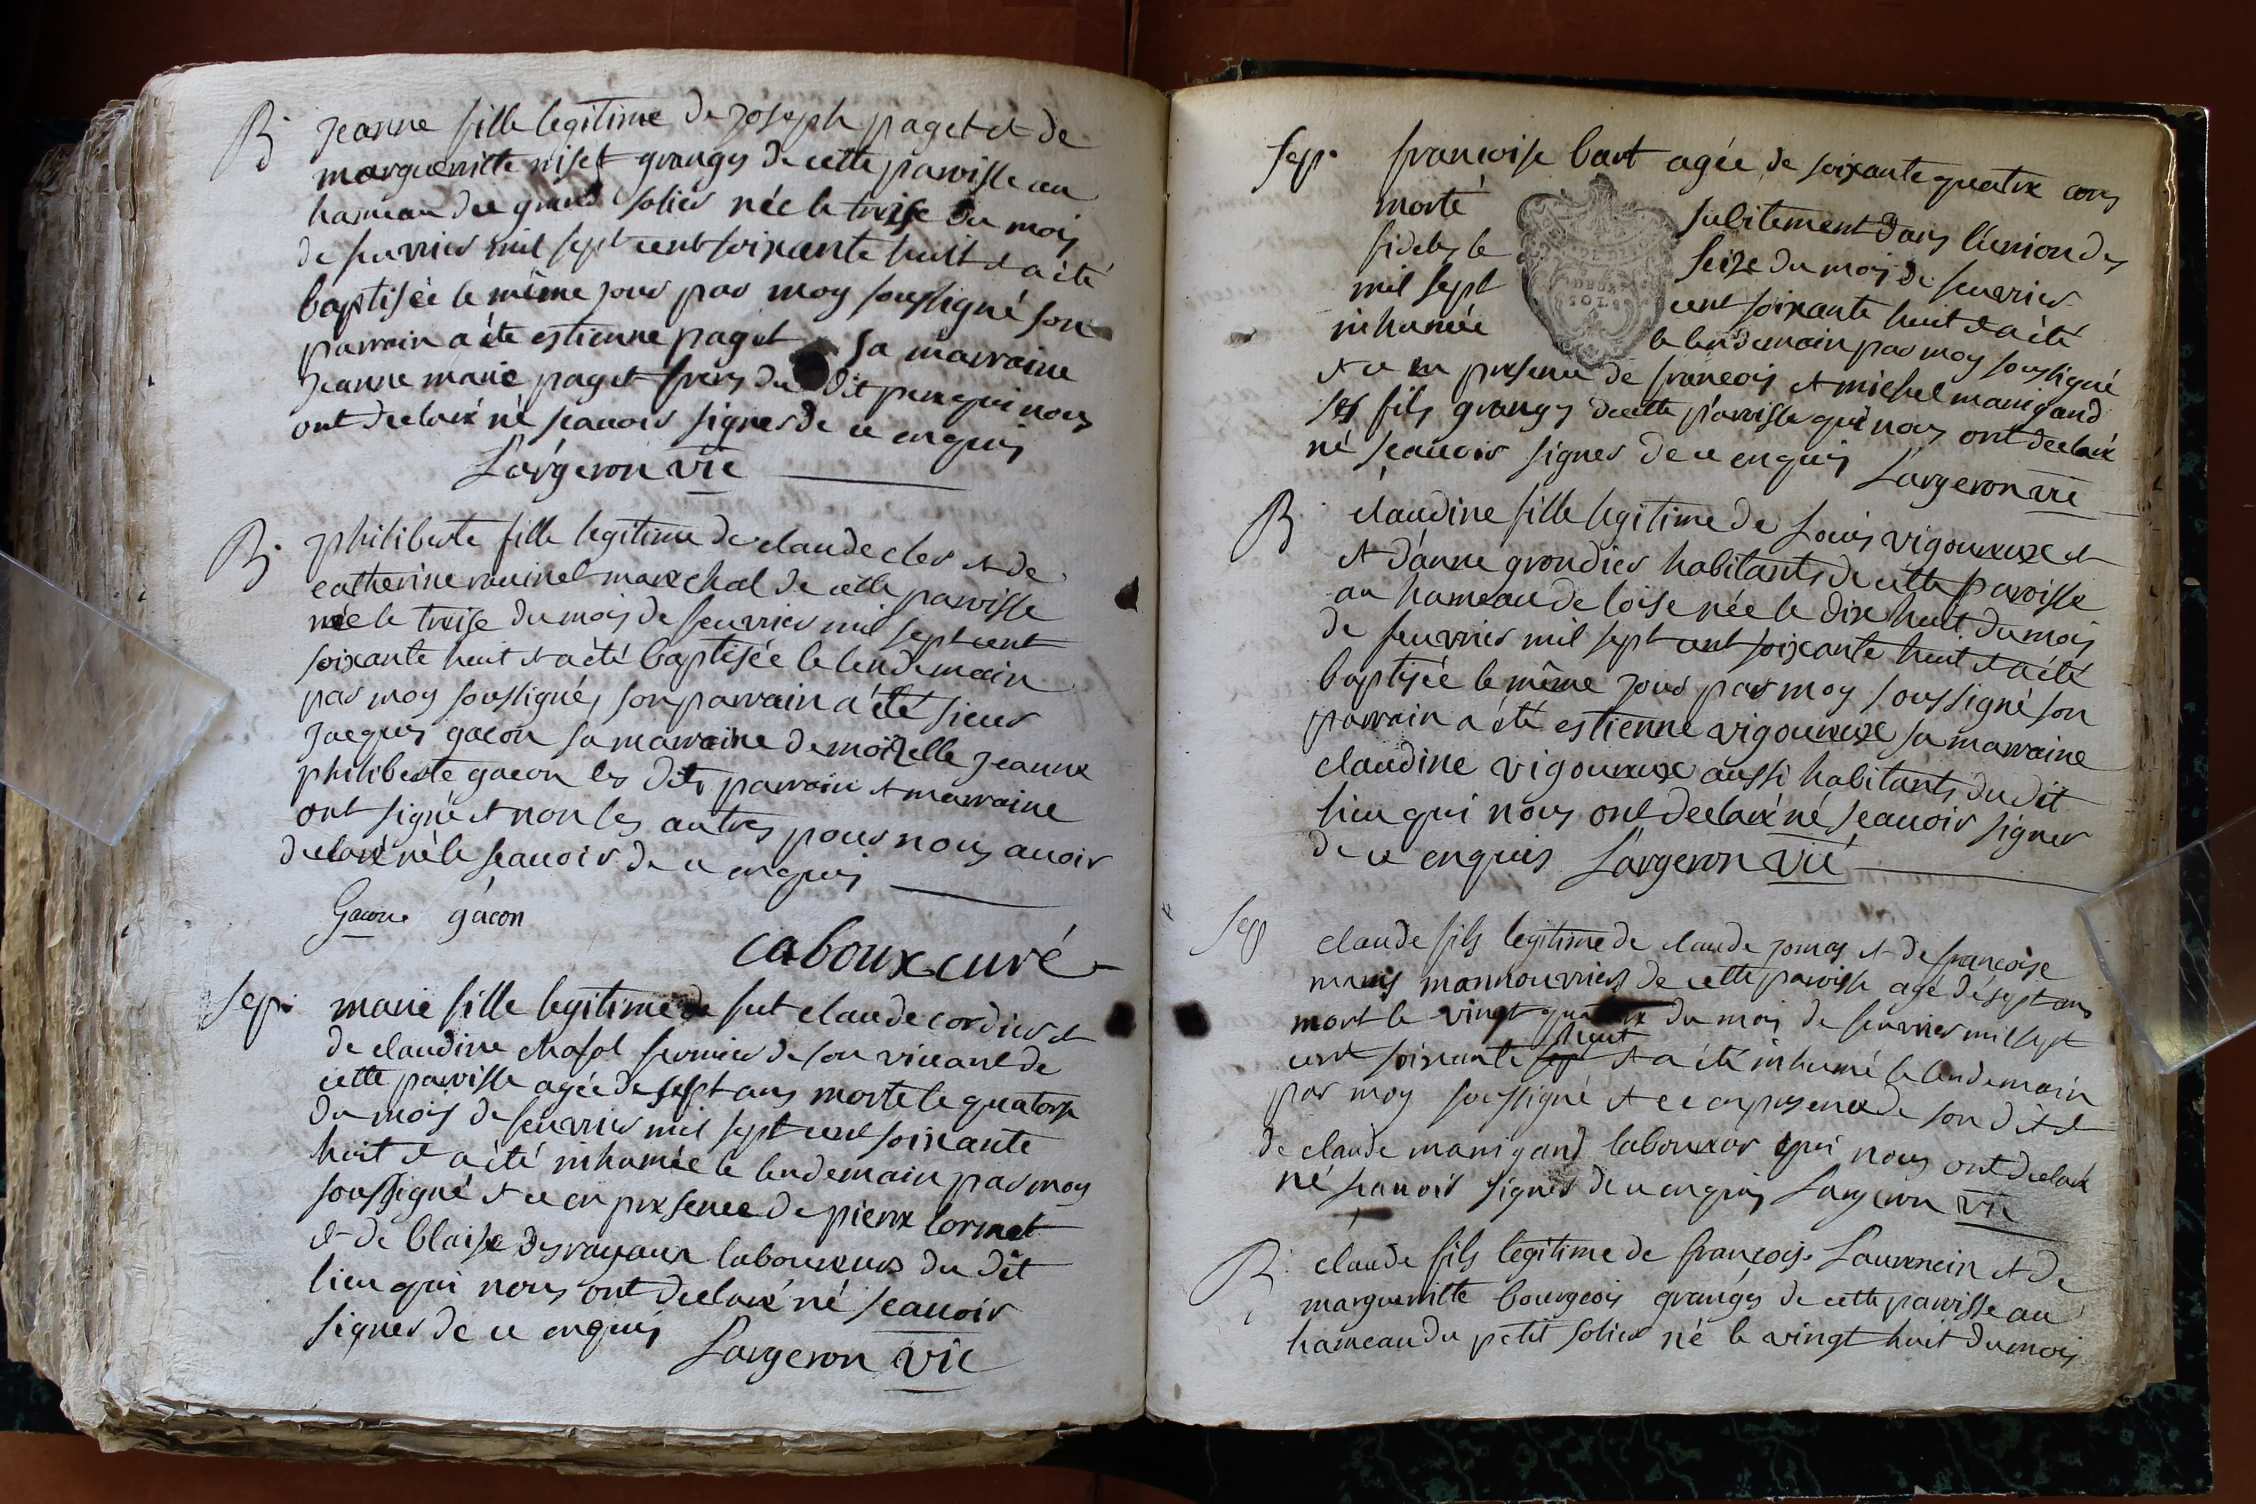 B. Jeanne fille legitime de joseph paget et de
margueritte niset granger de cette paroisse au
hameau du grand solier née le treise du mois
de feuvrier mil sept cent soixante huit et a été
baptisée le même jour par moy soussigné son
parrain a été estienne paget sa marraine
Jeanne marie paget frere du dit pere qui nous
ont declaré né scauoir signer de ce enquis
Largeron vic
B. philiberte fille legitime de claude cler et de
catherine rauinel marechal de cette paroisse
née le treise du mois de feuvrier mil sept cent
soixante huit et a été baptisée le lendemain
par moy soussigné, son parrain a été sieur
Jacques gacon sa marraine demoiselle jeanne
philiberte gacon les dits parrain et marraine
ont signé et non les autres pour nous auoir
declaré né le scauoir de ce enquis
Gacon gacon
caboux curé
sep. marie fille legitime de fut claude cordier et
de claudine chasot fermier de son viuant de
cette paroisse agée de sept ans morte le quatorse
du mois de feuvrier mil sept cent soixante
huit et a été inhumée le lendemain par moy
soussigné et ce en presence de pierre cormet
et de blaise desrayaux laboureurs du dit
lieu qui nous ont declaré né scauoir
signer de ce enquis Largeron vic
sep. francoise bart agée de soixante quatre ans
morte subitement dans l'union des
fideles le seize du mois de feuvrier
mil sept cent soixante huit et a été
inhumée le lendemain par moy soussigné
et ce en presence de francois et michel manigand
ses fils granger de cette paroisse qui nous ont declaré
né scauoir signer de ce enquis Largeron vic
DEUX
SOLS
B claudine fille legitime de Louis vigoureux et
et d'anne grondier habitants de cette paroisse
au hameau de loise née le dix huit du mois
de feuvrier mil sept cent soixante huit et a été
baptisée le même jour par moy soussigné son
parrain a été estienne vigoureux sa marraine
claudine vigoureux aussi habitants du dit
lieu qui nous ont declaré né scauoir signer
de ce enquis Largeron vic
sep claude fils legitime de claude jomas et de francoise
manis mannouvrier de cette paroisse agé de sept ans
mort le vingt quatre du mois de feuvrier mil sept
huit
cent soixante sept et a été inhumé le lendemain
par moy soussigné et ce en presence de son dit et
de claude manigand laboureur qui nous ont declaré
né scauoir signer de ce enquis Largeron vic
B. claude fils legitime de francois Laurencin et de
margueritte bourgeois granger de cette paroisse au
hameau du petit solier né le vingt huit du mois